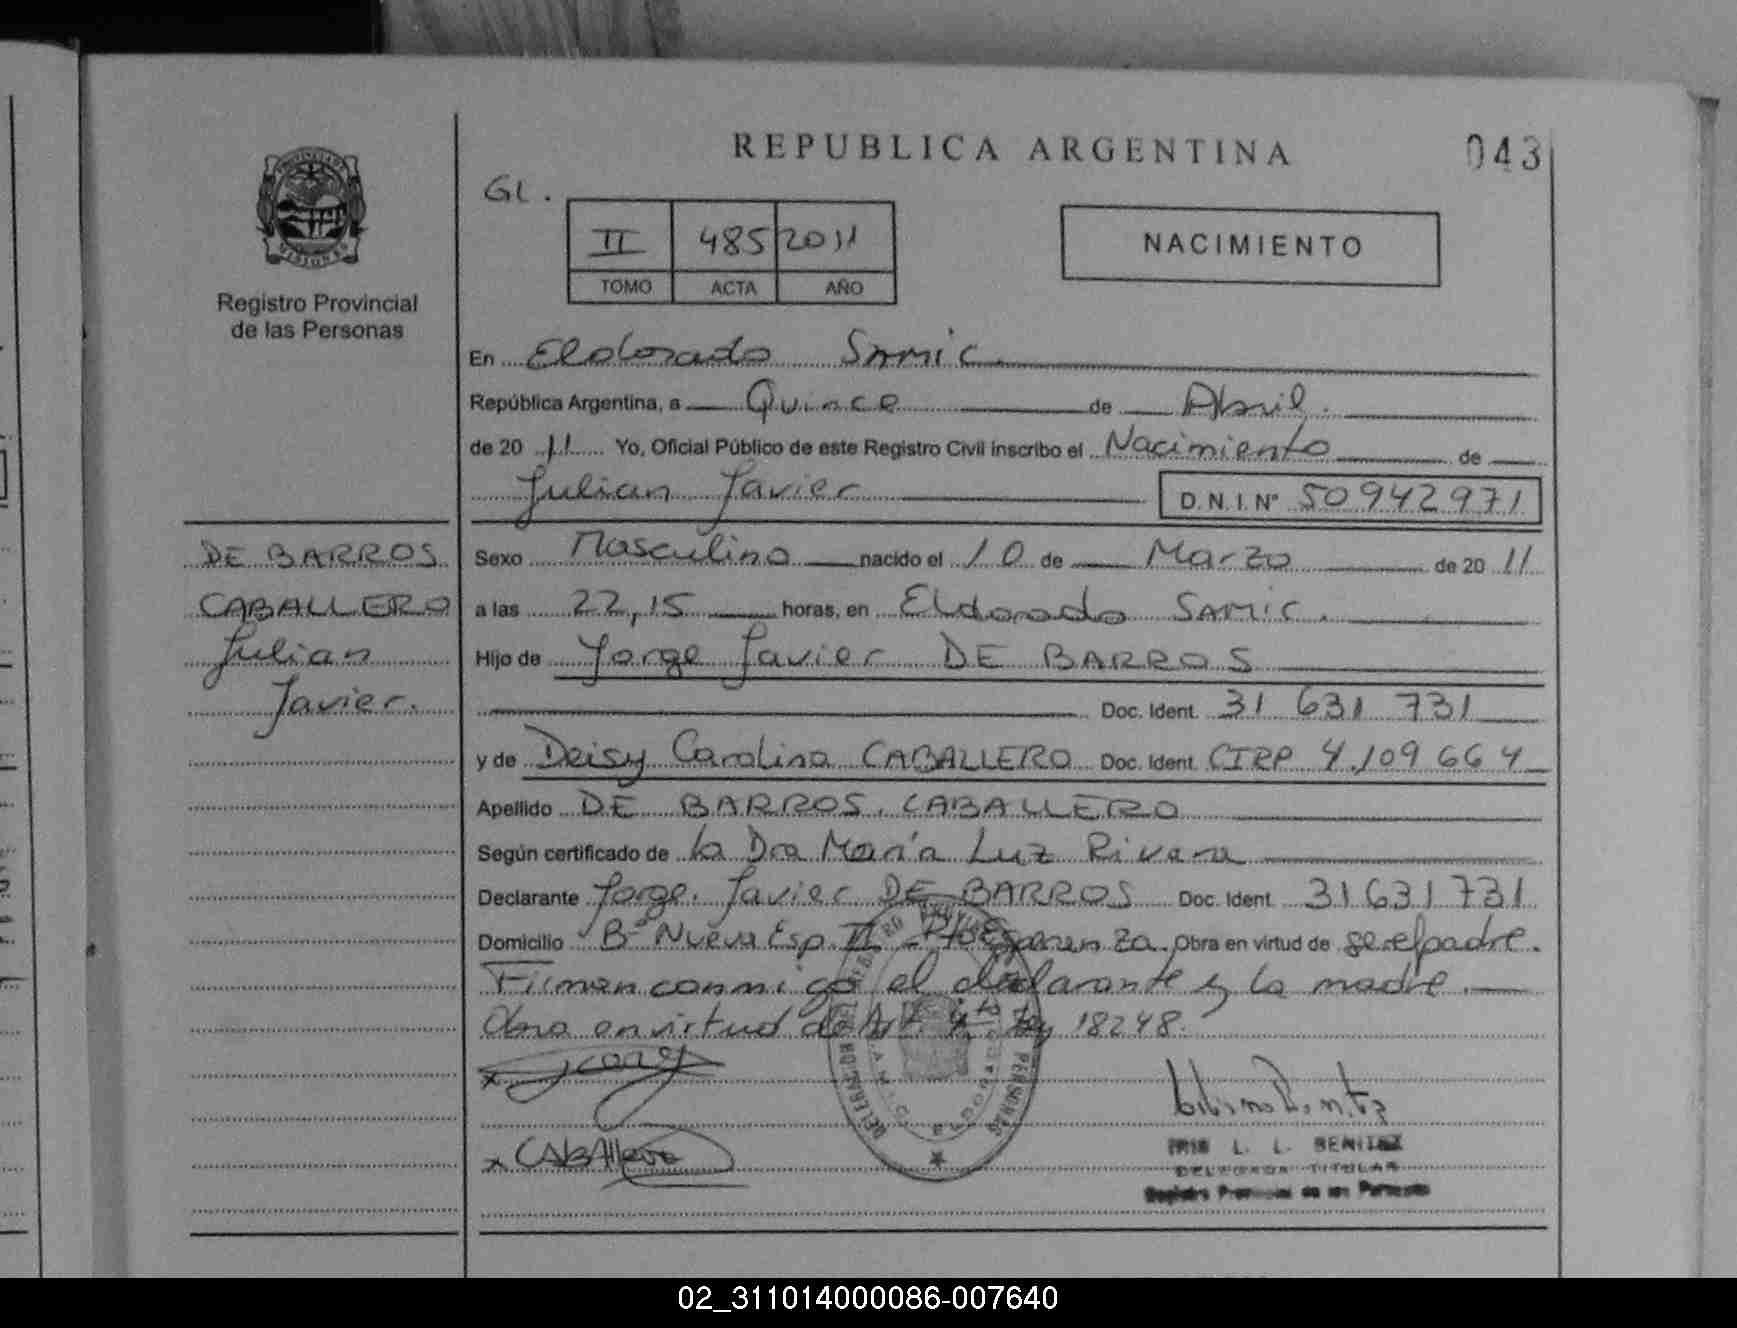 REPUBLICA ARGENTINA
043
GL.
II 485 2011
TOMO ACTA AÑO
NACIMIENTO
PROVINCIA DE MISIONES
Registro Provincial
de las Personas
En Eldorado SAMIC.
República Argentina, a Quince de Abril.
de 20 11 Yo, Oficial Público de este Registro Civil inscribo el Nacimiento de
Julian Javier D.N.I. Nº 50942971
DE BARROS
CABALLERO
Julian
Javier.
Sexo Masculino nacido el 10 de Marzo de 20 11
a las 22,15 horas, en Eldorado SAMIC.
Hijo de Jorge Javier DE BARROS
Doc. Ident. 31 631 731
y de Deisy Carolina CABALLERO Doc. Ident. CIRP 4.109 664
Apellido DE BARROS, CABALLERO
Según certificado de la Dra María Luz Rivera
Declarante Jorge Javier DE BARROS Doc. Ident. 31631731
Domicilio Bº Nueva Esp. II - Pto Esperanza. Obra en virtud de ser el padre.
Firman conmigo el declarante y la madre.
Obra en virtud de Art. 4to Ley 18248.
x Jorge
x CABAllero
PERSONAS
ELDORADO
IRIS L. L. BENITEZ
DELEGADA TITULAR
Registro Provincial de las Personas
02_311014000086-007640